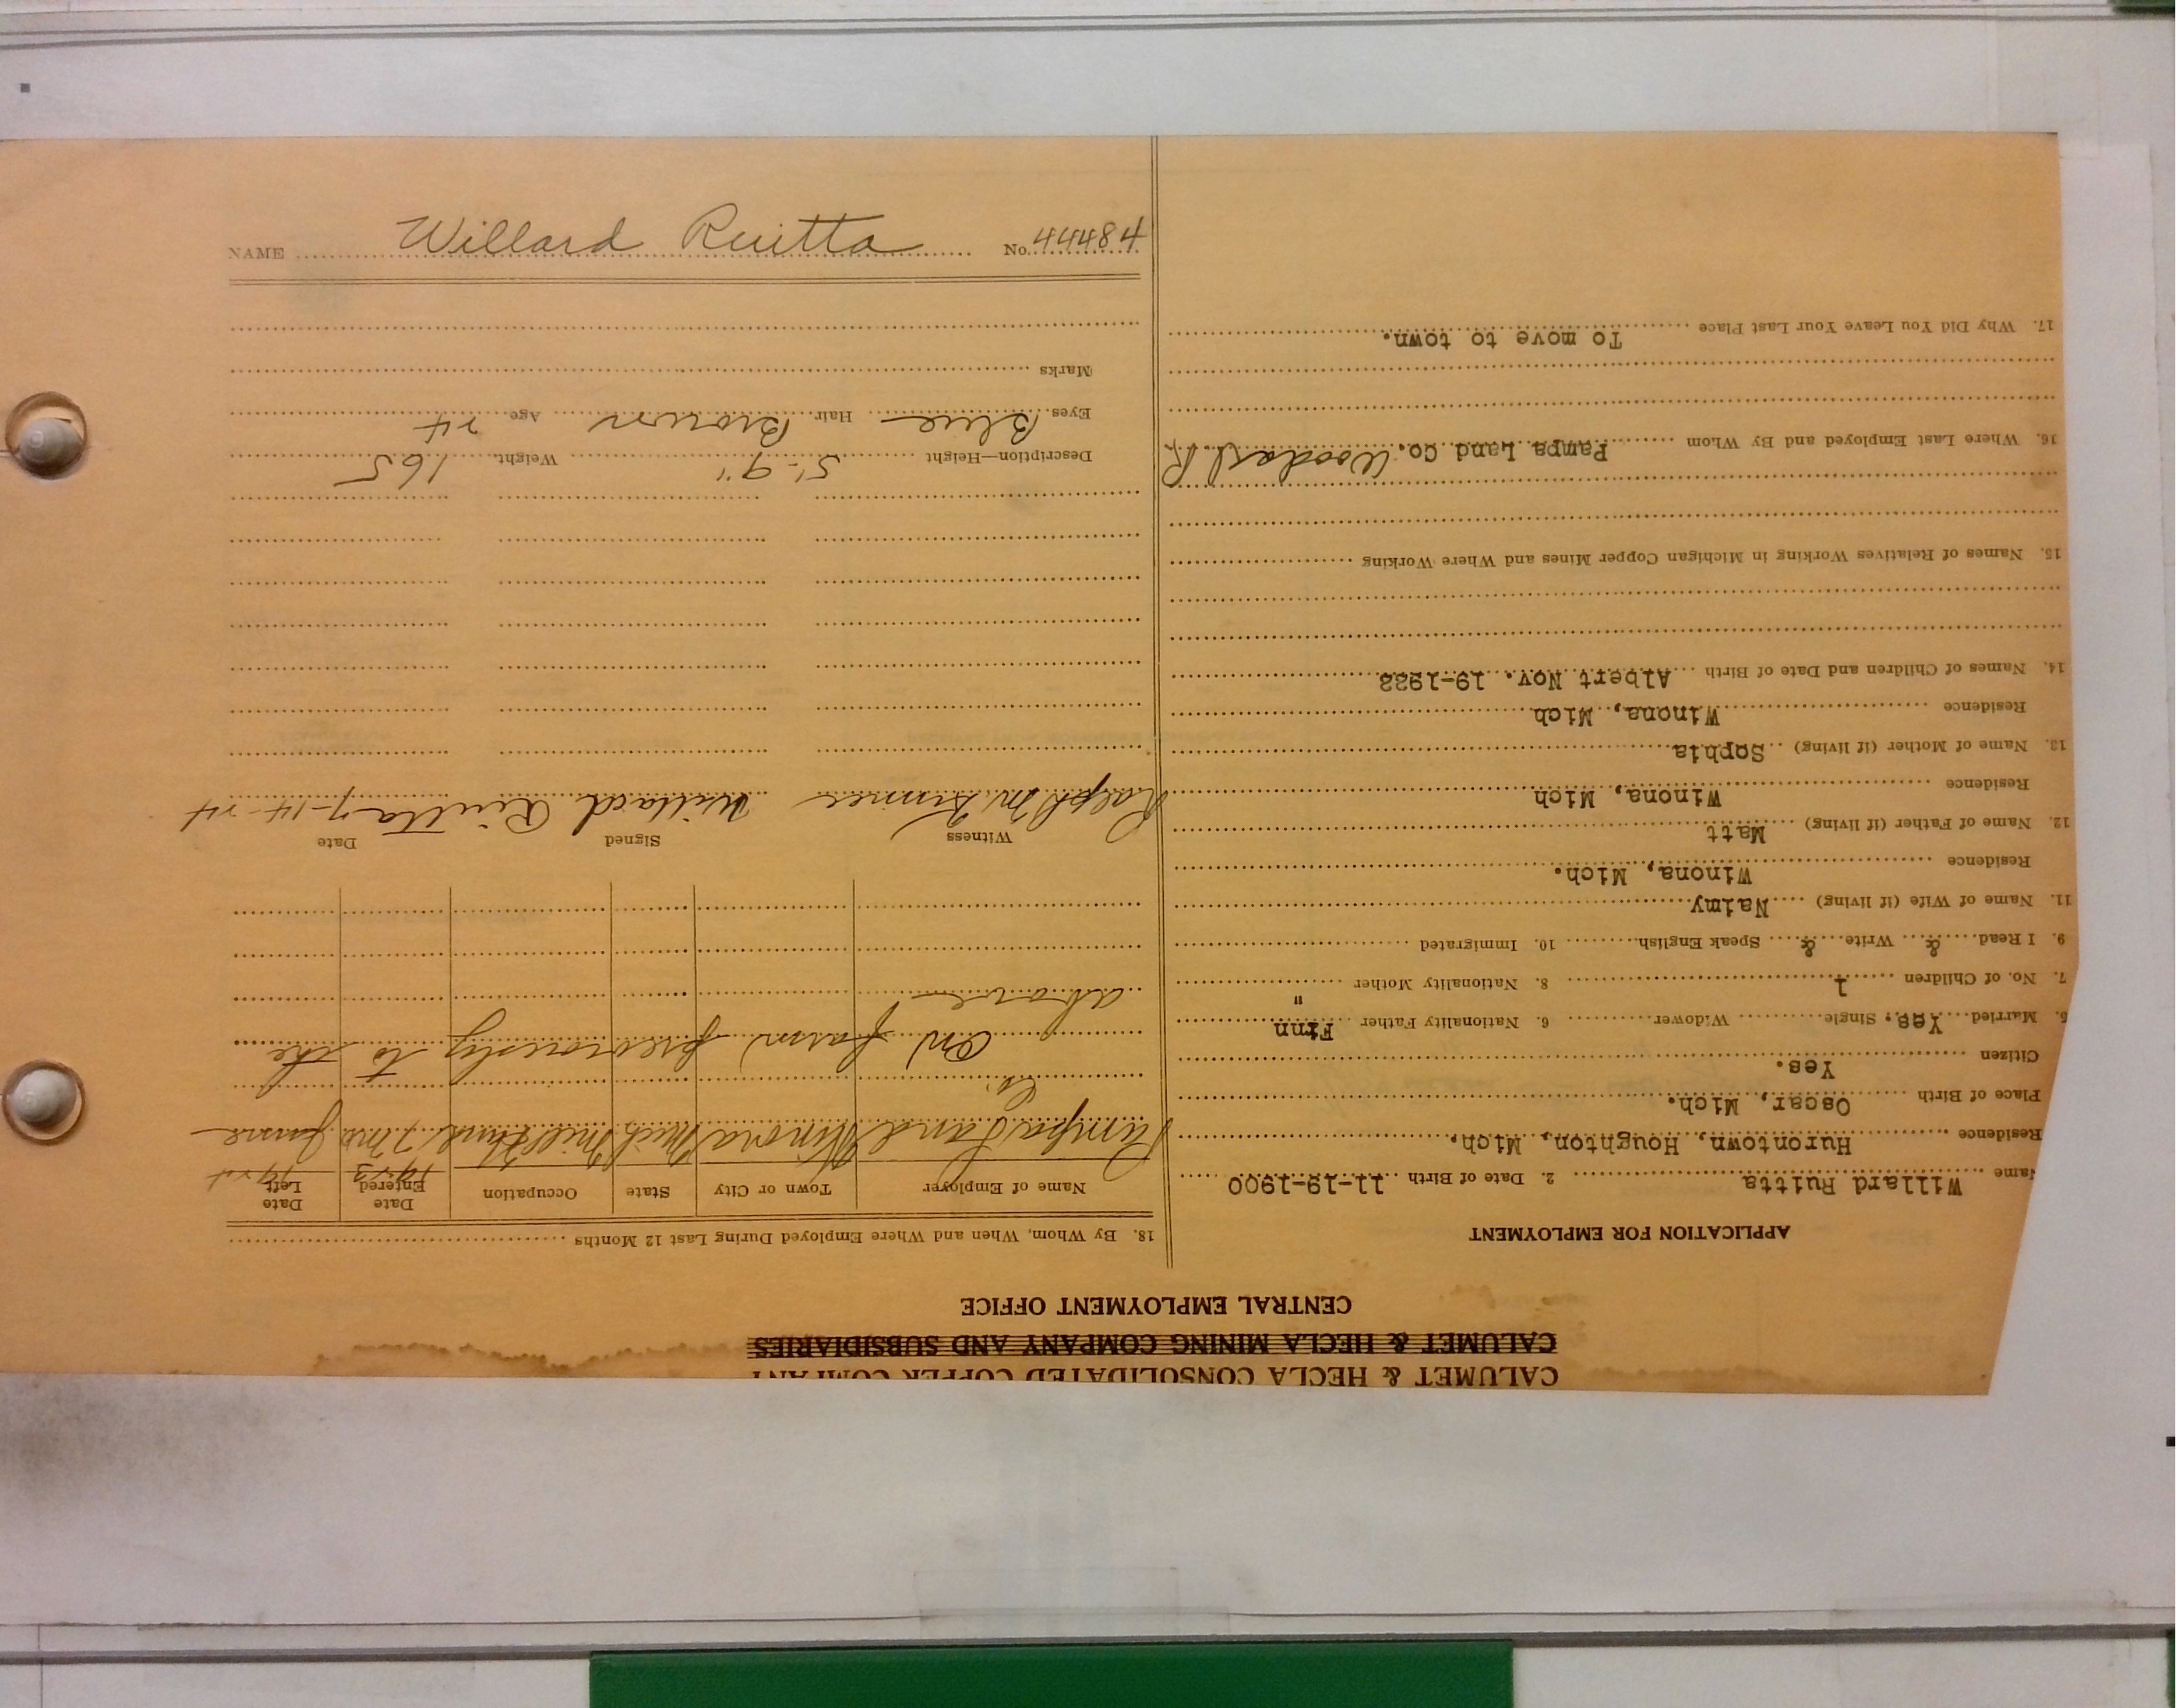 CALUMET & HECLA CONSOLIDATED COPPER COMPANY
CALUMET & HECLA MINING COMPANY AND SUBSIDIARIES
CENTRAL EMPLOYMENT OFFICE
APPLICATION FOR EMPLOYMENT
Name Willard Ruitta 2. Date of Birth 11-19-1900
Residence Hurontown, Houghton, Mich,
Place of Birth Oscar, Mich.
Citizen Yes.
5. Married Yes. Single Widower 6. Nationality Father Finn
7. No. of Children 1 8. Nationality Mother "
9. I Read & Write & Speak English 10. Immigrated
11. Name of Wife (if living) Naimy
Residence Winona, Mich.
12. Name of Father (if living) Matt
Residence Winona, Mich
13. Name of Mother (if living) Sophia
Residence Winona, Mich
14. Names of Children and Date of Birth Albert Nov. 19-1923
15. Names of Relatives Working in Michigan Copper Mines and Where Working
16. Where Last Employed and By Whom Pampa Land Co. Woodard R
17. Why Did You Leave Your Last Place To move to town.
18. By Whom, When and Where Employed During Last 12 Months
Name of Employer Town or City State Occupation Date Entered Date Left
1923 1924
Pampa Land Co. Winona Mich Mill Hand 7 Mo June
On farm previously to the
above
Witness Signed Date
Ralph Willard Ruitta 7-14-24
Description—Height 5'-9" Weight 165
Eyes Blue Hair Brown Age 24
Marks
NAME Willard Ruitta No. 44484